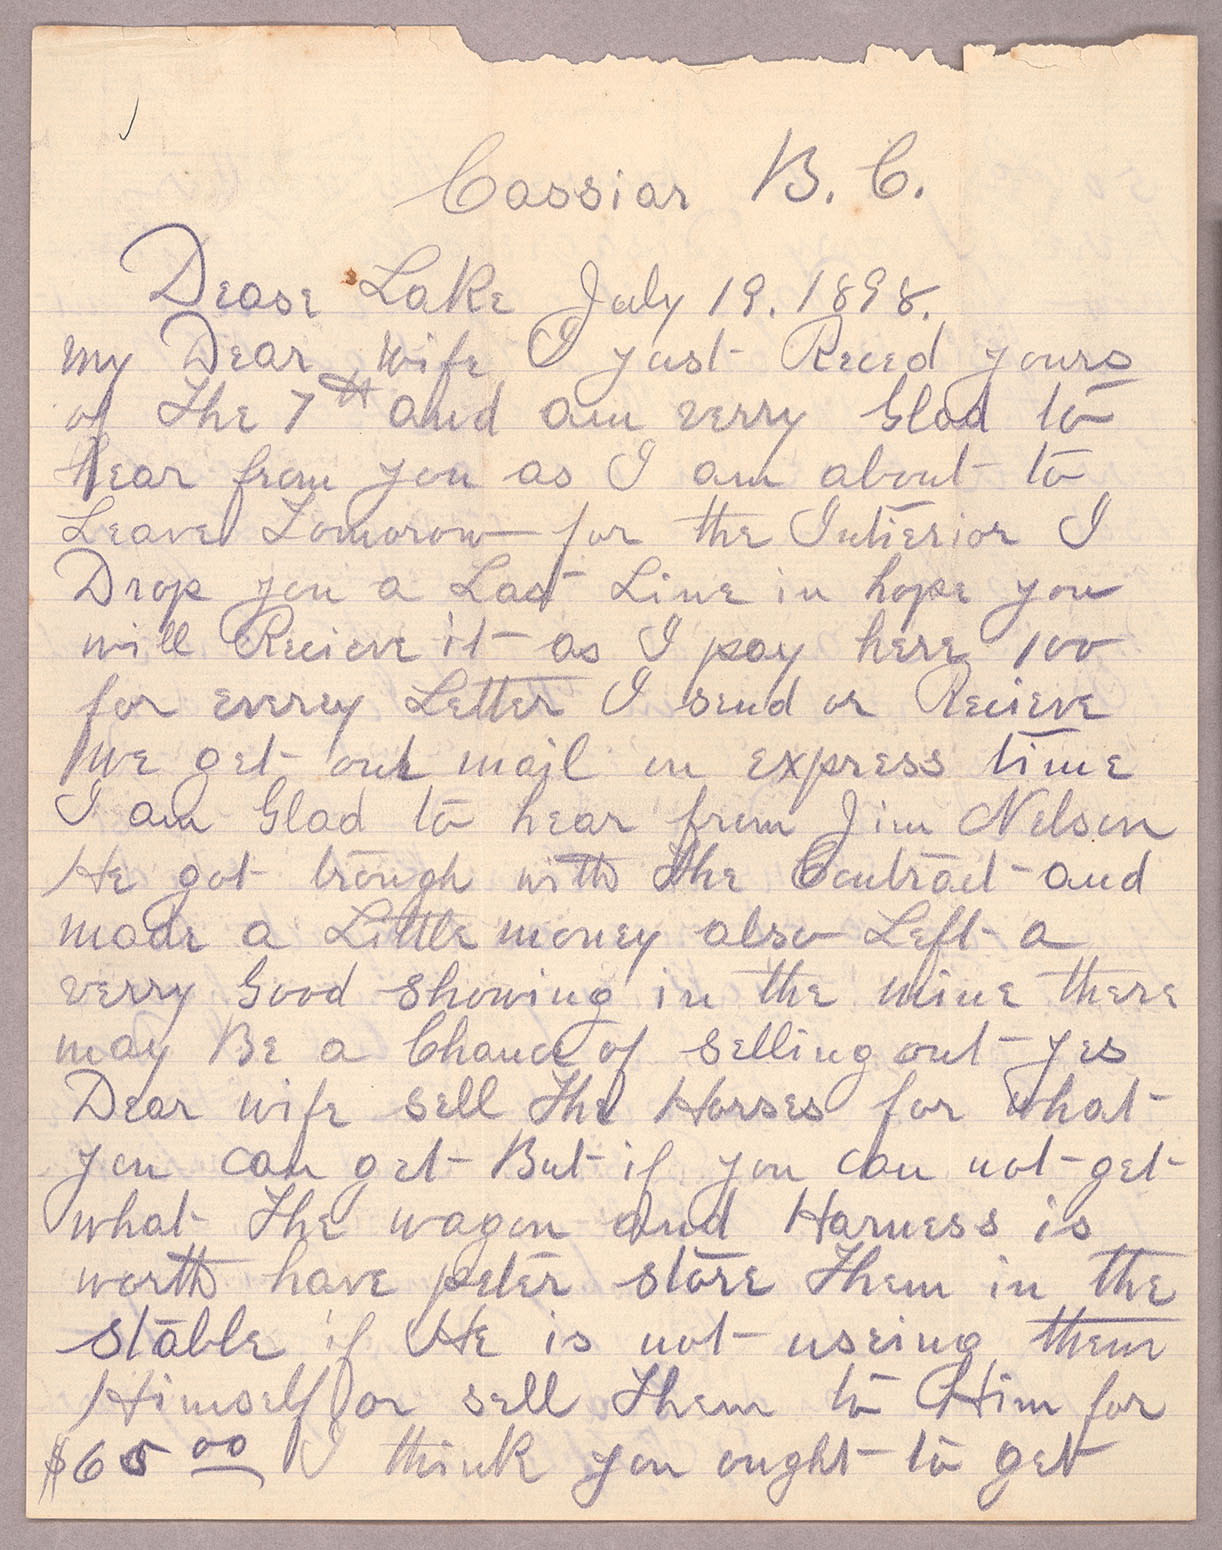 Cassiar B. C.
Dease Lake July 19. 1898.
my Dear wife I just Reced yours
of The 7th and am verry Glad to
hear from you as I am about to
Leave Tomorow for the Intierior I
Drop you a Last Line in hope you
will Recieve it as I pay here 100
for everey Letter I send or Recieve
we get our mail in express time
I am Glad to hear from Jim Nelson
He got trough with the Contract and
made a Little money also Left a
verry Good showing in the mine there
may Be a Chance of selling out yes
Dear wife sell The Horses for what
you can get But if you can not get
what The wagon and Harness is
worth have peter store Them in the
stable if He is not useing them
Himself or sell Them to Him for
$65 00 I think you ought to get